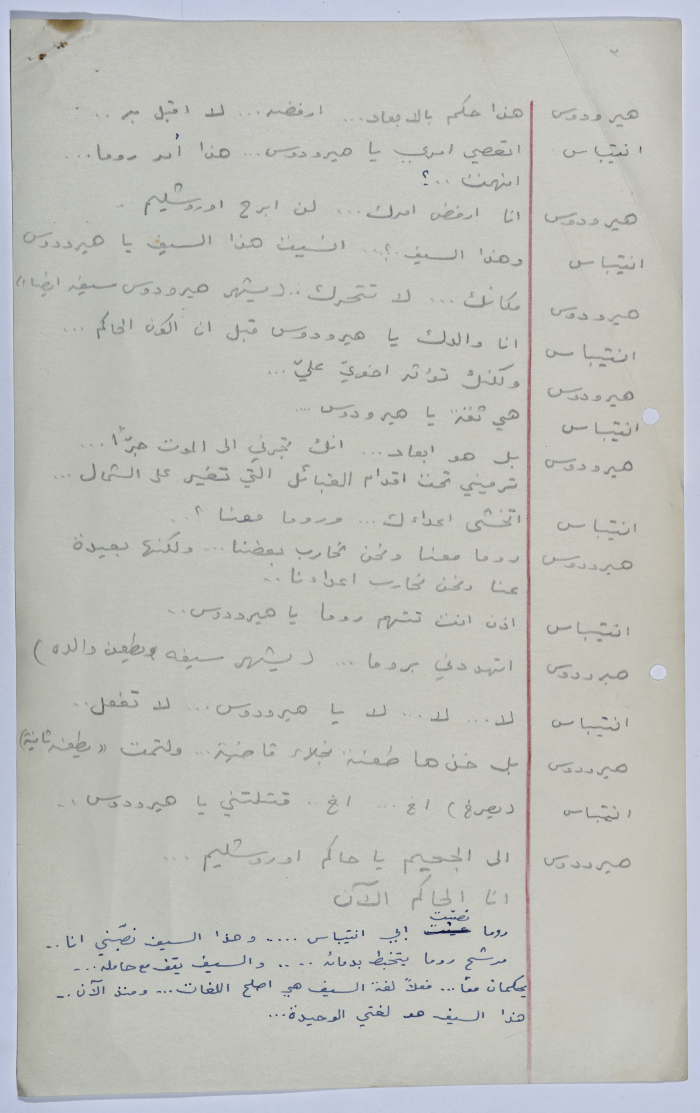 ٢
هيرودوس هذا حكم بالابعاد... ارفضه... لا اقبل به ...
انتيباس اتعصي امري يا هيرودوس... هذا أمر روما...
افهمت ..؟
هيرودوس انا ارفض امرك... لن ابرح اوروشليم ..
انتيباس وهذا السيف ؟... انسيت هذا السيف يا هيرودوس
هيرودوس مكانك... لا تتحرك.. (يشهر هيرودوس سيفه ايضا)
انتيباس انا والدك يا هيرودوس قبل ان اكون الحاكم ...
هيرودوس ولكنك تؤثر اخويّ عليّ ...
انتيباس هي ثقة يا هيرودوس ....
هيرودوس بل هو ابعاد... انك تجرني الى الموت جرّاً...
ترميني تحت اقدام القبائل التي تغير على الشمال ...
انتيباس اتخشى اعداءك... وروما معنا ؟..
هيرودوس روما معنا ونحن نحارب بعضنا... ولكنها بعيدة
عنا ونحن نحارب اعداءنا ..
انتيباس اذن انت تتهم روما يا هيرودوس..
هيرودوس اتهددني بروما ... (يشهر سيفه ويطعن والده)
انتيباس لا... لا... لا يا هيرودوس... لا تفعل..
هيرودوس بل خذها طعنة نجلاء قاضية... ولتمت (يطعنه ثانية)
انتيباس (يصرخ) اخ ... اخ .. قتلتني يا هيرودوس ..
هيرودوس الى الجحيم يا حاكم اوروشليم ...
انا الحاكم الآن
روما عينت نصبّت ابي انتيباس .... وهذا السيف نصّبني انا ..
مرشح روما يتخبط بدمائه .... والسيف يقف مع حامله...
يحكمان معاً... فعلاً لغة السيف هي اصلح اللغات... ومنذ الآن ..
هذا السيف هو لغتي الوحيدة...